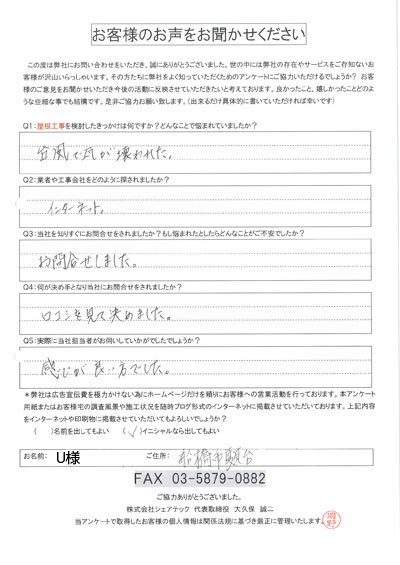 お客様のお声をお聞かせください
この度は弊社にお問い合わせをいただき、誠にありがとうございました。世の中には弊社の存在やサービスをご存知ないお
客様が沢山いらっしゃいます。その方たちに弊社をよく知っていただくためのアンケートにご協力いただけるでしょうか? お客
様のご意見をお聞かせいただき今後の活動に反映させていただきたいと考えております。良かったこと、嬉しかったことどのよ
うな些細な事でも結構です。是非ご協力お願い致します。(出来るだけ具体的に書いていただければ幸いです)
Q1:屋根工事を検討したきっかけは何ですか?どんなことで悩まれていましたか?
台風で瓦が壊われた。
Q2:業者や工事会社をどのように探されましたか?
インターネット。
Q3:当社を知りすぐにお問合せをされましたか?もし悩まれたとしたらどんなことがご不安でしたか?
お問合せしました。
Q4:何が決め手となり当社にお問合せをされましたか?
口コミを見て決めました。
Q5:実際に当社担当者がお伺いしていかがでしたでしょうか?
感じが良い方でした。
*弊社は広告宣伝費を極力かけない為にホームページだけを頼りにお客様への営業活動を行っております。本アンケート
用紙またはお客様宅の調査風景や施工状況を随時ブログ形式のインターネットに掲載させていただいております。上記内容
をインターネットや印刷物に掲載させていただいてもよろしいでしょうか?
( )名前を出してもよい (✓)イニシャルなら出してもよい
お名前: U様 ご住所: 船橋市夏見台
FAX 03-5879-0882
ご協力ありがとうございました。
株式会社シェアテック 代表取締役 大久保 誠二
当アンケートで取得したお客様の個人情報は関係法規に基づき厳正に管理いたします。